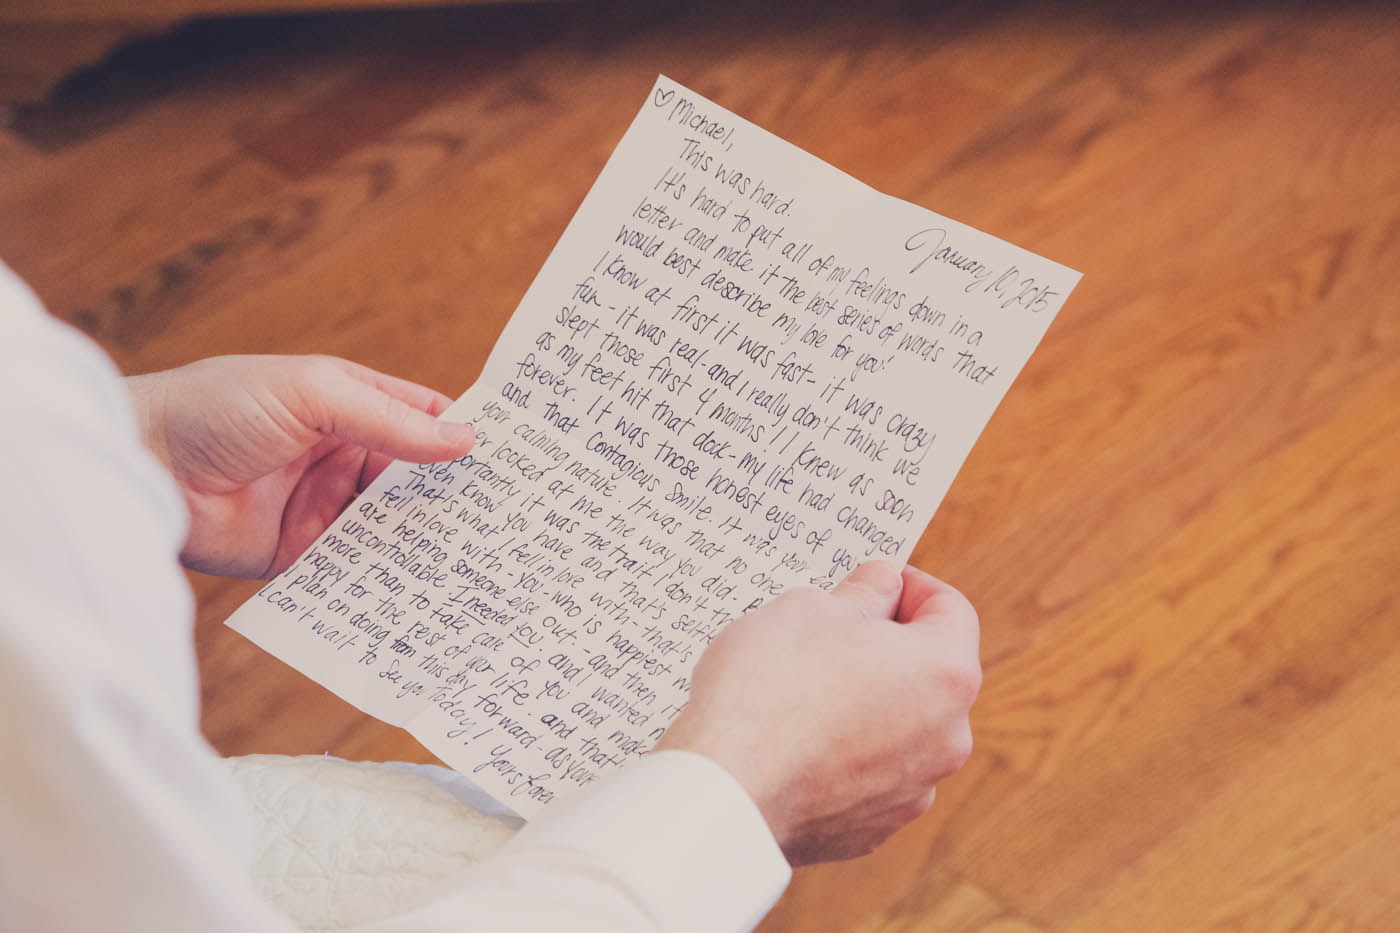 January 10, 2015
♡ Michael,
This was hard.
It's hard to put all of my feelings down in a
letter and make it the best series of words that
would best describe my love for you!
I know at first it was fast - it was crazy
fun - it was real - and I really don't think we
slept those first 4 months! I knew as soon
as my feet hit that dock - my life had changed
forever. It was those honest eyes of yours
and that contagious smile. It was your
your calming nature. It was that no one
looked at me the way you did.
it was the trait I don't
even know you have and that's
That's what I fell in love with - that's
fell in love with - you - who is happiest
are helping someone else out. - and then it
uncontrollable. I needed you. and I wanted
more than to take care of you and make
happy for the rest of our life. and that
I plan on doing from this day forward - as your
I can't wait to see you today! Yours forever